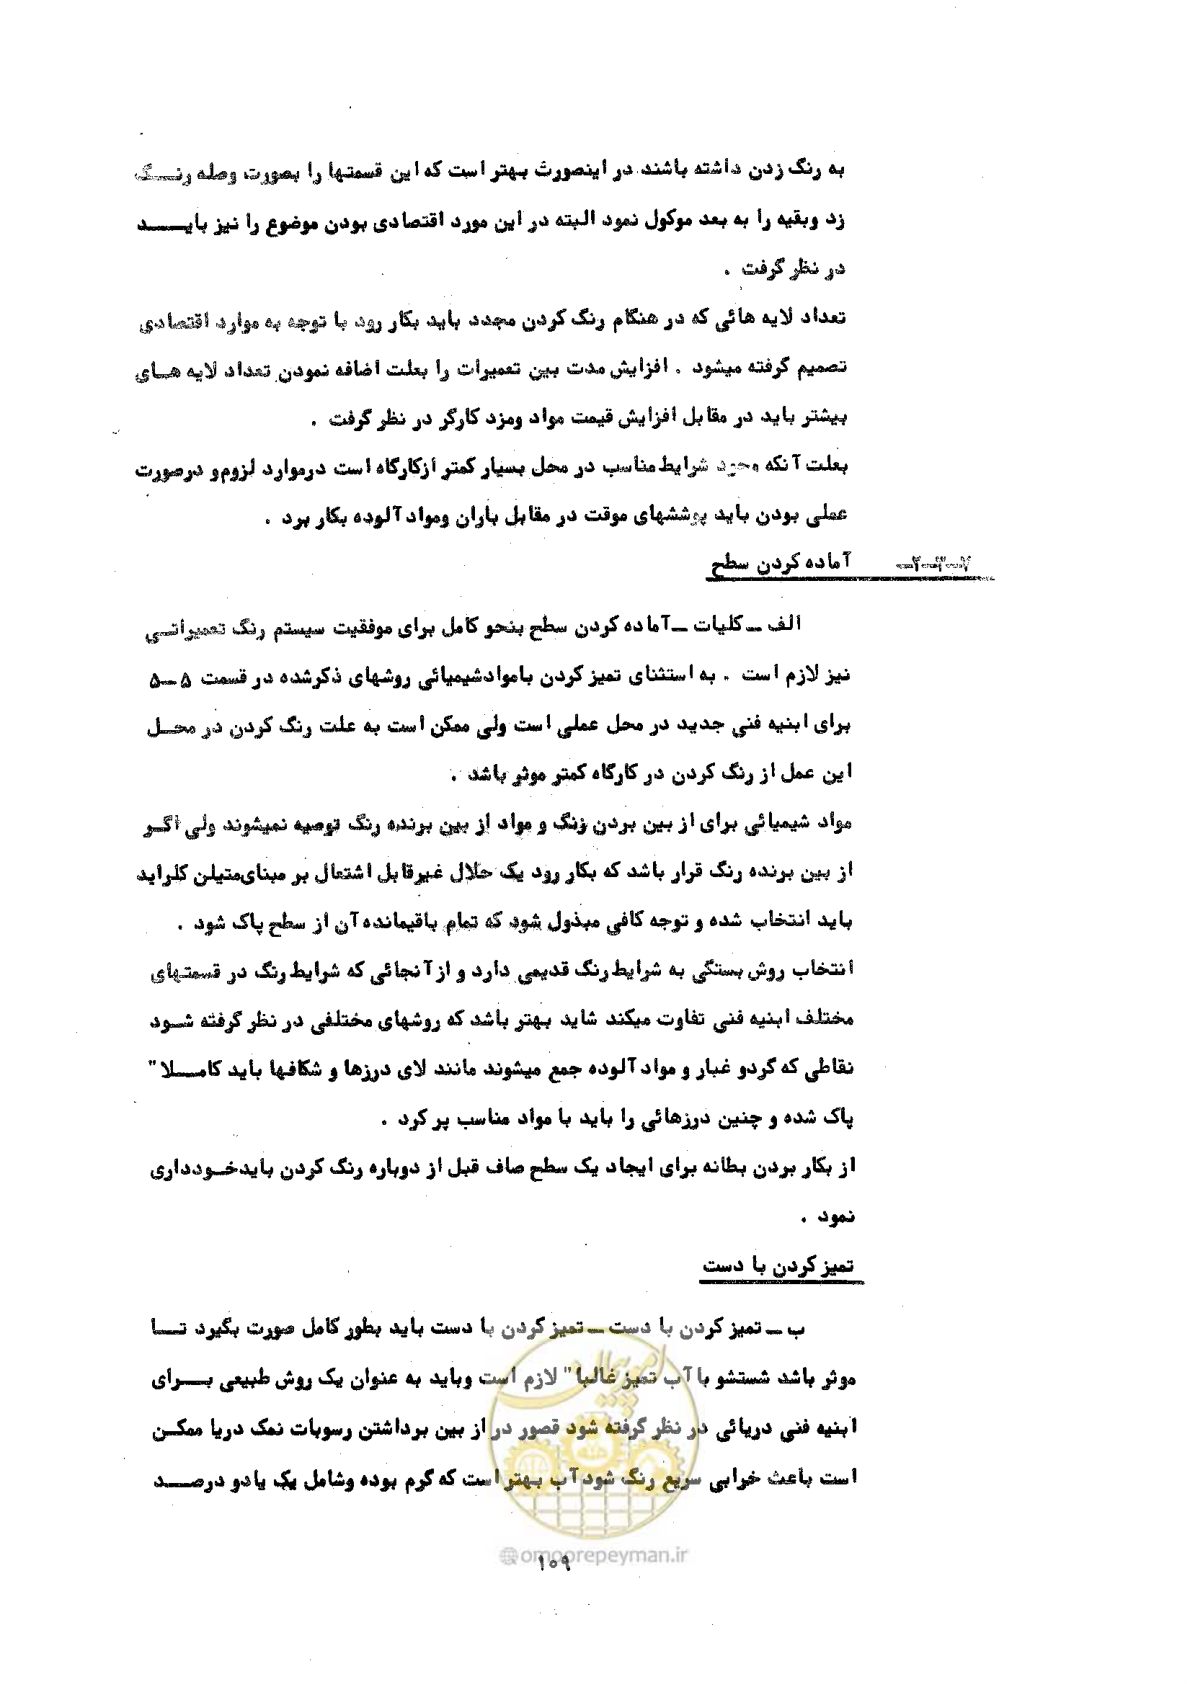 به رنگ زدن داشته باشند در اینصورت بهتر است که این قسمتها را بصورت وصله رنگ
زد وبقیه را به بعد موکول نمود البته در این مورد اقتصادی بودن موضوع را نیز باید
در نظر گرفت .
تعداد لایه هائی که در هنگام رنگ کردن مجدد باید بکار رود با توجه به موارد اقتصادی
تصمیم گرفته میشود . افزایش مدت بین تعمیرات را بعلت اضافه نمودن تعداد لایه های
بیشتر باید در مقابل افزایش قیمت مواد ومزد کارگر در نظر گرفت .
بعلت آنکه وجود شرایط مناسب در محل بسیار کمتر ازکارگاه است درموارد لزوم و درصورت
عملی بودن باید پوششهای موقت در مقابل باران ومواد آلوده بکار برد .
۷-۳-۲- آماده کردن سطح
الف - کلیات - آماده کردن سطح بنحو کامل برای موفقیت سیستم رنگ تعمیراتی
نیز لازم است . به استثنای تمیز کردن باموادشیمیائی روشهای ذکرشده در قسمت ۵-۵
برای ابنیه فنی جدید در محل عملی است ولی ممکن است به علت رنگ کردن در محل
این عمل از رنگ کردن در کارگاه کمتر موثر باشد .
مواد شیمیائی برای از بین بردن زنگ و مواد از بین برنده رنگ توصیه نمیشوند ولی اگر
از بین برنده رنگ قرار باشد که بکار رود یک حلال غیرقابل اشتعال بر مبنای متیلن کلراید
باید انتخاب شده و توجه کافی مبذول شود که تمام باقیمانده آن از سطح پاک شود .
انتخاب روش بستگی به شرایط رنگ قدیمی دارد و از آنجائی که شرایط رنگ در قسمتهای
مختلف ابنیه فنی تفاوت میکند شاید بهتر باشد که روشهای مختلفی در نظر گرفته شود
نقاطی که گردو غبار و مواد آلوده جمع میشوند مانند لای درزها و شکافها باید کاملا"
پاک شده و چنین درزهائی را باید با مواد مناسب پر کرد .
از بکار بردن بطانه برای ایجاد یک سطح صاف قبل از دوباره رنگ کردن باید خودداری
نمود .
تمیز کردن با دست
ب - تمیز کردن با دست - تمیز کردن با دست باید بطور کامل صورت بگیرد تا
موثر باشد شستشو با آب تمیز غالبا" لازم است وباید به عنوان یک روش طبیعی برای
ابنیه فنی دریائی در نظر گرفته شود قصور در از بین برداشتن رسوبات نمک دریا ممکن
است باعث خرابی سریع رنگ شود آب بهتر است که گرم بوده وشامل یک یادو درصد
امور پیمان
@omoorepeyman.ir
۱۰۹